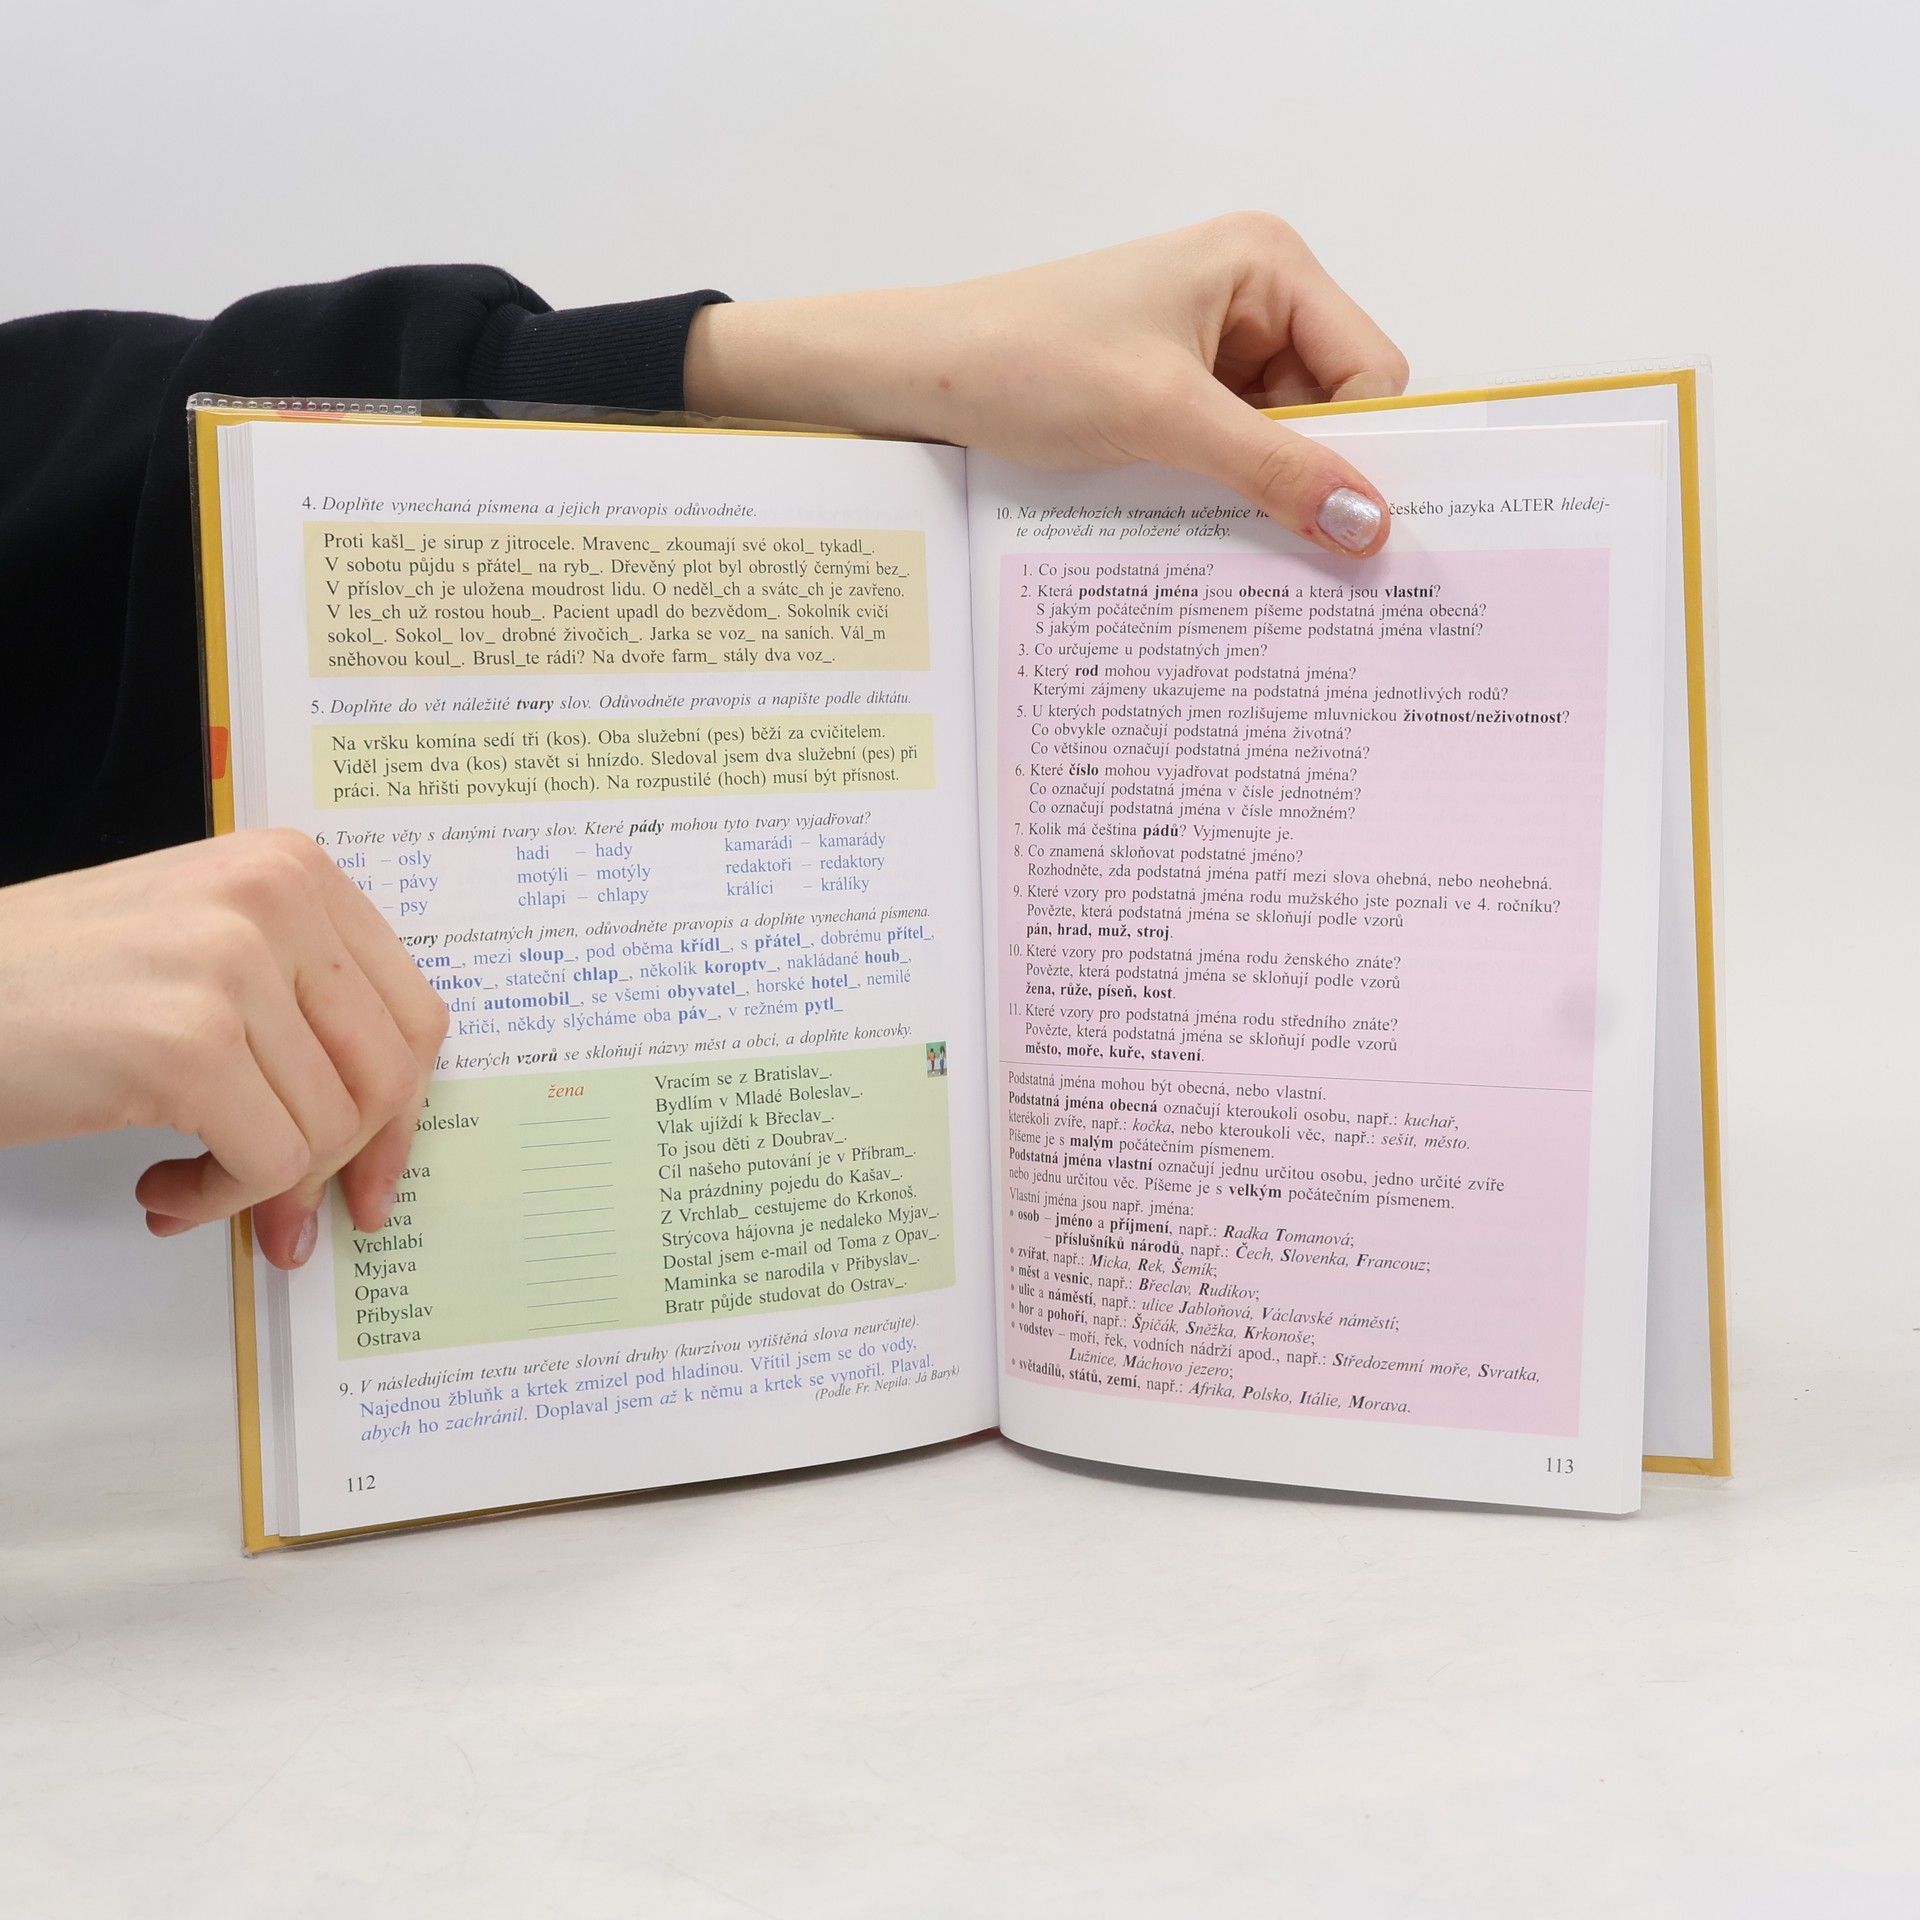 4. Doplňte vynechaná písmena a jejich pravopis odůvodněte.
Proti kašl_ je sirup z jitrocele. Mravenc_ zkoumají své okol_ tykadl_.
V sobotu půjdu s přátel_ na ryb_. Dřevěný plot byl obrostlý černými bez_.
V příslov_ch je uložena moudrost lidu. O neděl_ch a svátc_ch je zavřeno.
V les_ch už rostou houb_. Pacient upadl do bezvědom_. Sokolník cvičí
sokol_. Sokol_ lov_ drobné živočich_. Jarka se voz_ na saních. Vál_m
sněhovou koul_. Brusl_te rádi? Na dvoře farm_ stály dva voz_.
5. Doplňte do vět náležité tvary slov. Odůvodněte pravopis a napište podle diktátu.
Na vršku komína sedí tři (kos). Oba služební (pes) běží za cvičitelem.
Viděl jsem dva (kos) stavět si hnízdo. Sledoval jsem dva služební (pes) při
práci. Na hřišti povykují (hoch). Na rozpustilé (hoch) musí být přísnost.
6. Tvořte věty s danými tvary slov. Které pády mohou tyto tvary vyjadřovat?
osli – osly hadi – hady kamarádi – kamarády
– pávy motýli – motýly redaktoři – redaktory
– psy chlapi – chlapy králíci – králíky
vzory podstatných jmen, odůvodněte pravopis a doplňte vynechaná písmena.
mezi sloup_, pod oběma křídl_, s přátel_, dobrému přítel_,
stateční chlap_, několik koroptv_, nakládané houb_,
automobil_, se všemi obyvatel_, horské hotel_, nemilé
křičí, někdy slýcháme oba páv_, v režném pytl_
kterých vzorů se skloňují názvy měst a obcí, a doplňte koncovky.
žena Vracím se z Bratislav_.
Boleslav Bydlím v Mladé Boleslav_.
Vlak ujíždí k Břeclav_.
To jsou děti z Doubrav_.
Cíl našeho putování je v Příbram_.
Na prázdniny pojedu do Kašav_.
Z Vrchlab_ cestujeme do Krkonoš.
Vrchlabí Strýcova hájovna je nedaleko Myjav_.
Myjava Dostal jsem e-mail od Toma z Opav_.
Opava Maminka se narodila v Přibyslav_.
Přibyslav Bratr půjde studovat do Ostrav_.
Ostrava
9. V následujícím textu určete slovní druhy (kurzívou vytištěná slova neurčujte).
Najednou žbluňk a krtek zmizel pod hladinou. Vřítil jsem se do vody,
abych ho zachránil. Doplaval jsem až k němu a krtek se vynořil. Plaval.
(Podle Fr. Nepila: Já Baryk)
112
10. Na předchozích stranách učebnice českého jazyka ALTER hledej-
te odpovědi na položené otázky.
1. Co jsou podstatná jména?
2. Která podstatná jména jsou obecná a která jsou vlastní?
S jakým počátečním písmenem píšeme podstatná jména obecná?
S jakým počátečním písmenem píšeme podstatná jména vlastní?
3. Co určujeme u podstatných jmen?
4. Který rod mohou vyjadřovat podstatná jména?
Kterými zájmeny ukazujeme na podstatná jména jednotlivých rodů?
5. U kterých podstatných jmen rozlišujeme mluvnickou životnost/neživotnost?
Co obvykle označují podstatná jména životná?
Co většinou označují podstatná jména neživotná?
6. Které číslo mohou vyjadřovat podstatná jména?
Co označují podstatná jména v čísle jednotném?
Co označují podstatná jména v čísle množném?
7. Kolik má čeština pádů? Vyjmenujte je.
8. Co znamená skloňovat podstatné jméno?
Rozhodněte, zda podstatná jména patří mezi slova ohebná, nebo neohebná.
9. Které vzory pro podstatná jména rodu mužského jste poznali ve 4. ročníku?
Povězte, která podstatná jména se skloňují podle vzorů
pán, hrad, muž, stroj.
10. Které vzory pro podstatná jména rodu ženského znáte?
Povězte, která podstatná jména se skloňují podle vzorů
žena, růže, píseň, kost.
11. Které vzory pro podstatná jména rodu středního znáte?
Povězte, která podstatná jména se skloňují podle vzorů
město, moře, kuře, stavení.
Podstatná jména mohou být obecná, nebo vlastní.
Podstatná jména obecná označují kteroukoli osobu, např.: kuchař,
kterékoli zvíře, např.: kočka, nebo kteroukoli věc, např.: sešit, město.
Píšeme je s malým počátečním písmenem.
Podstatná jména vlastní označují jednu určitou osobu, jedno určité zvíře
nebo jednu určitou věc. Píšeme je s velkým počátečním písmenem.
Vlastní jména jsou např. jména:
• osob – jméno a příjmení, např.: Radka Tomanová;
– příslušníků národů, např.: Čech, Slovenka, Francouz;
• zvířat, např.: Micka, Rek, Šemík;
• měst a vesnic, např.: Břeclav, Rudíkov;
• ulic a náměstí, např.: ulice Jabloňová, Václavské náměstí;
• hor a pohoří, např.: Špičák, Sněžka, Krkonoše;
• vodstev – moří, řek, vodních nádrží apod., např.: Středozemní moře, Svratka,
Lužnice, Máchovo jezero;
• světadílů, států, zemí, např.: Afrika, Polsko, Itálie, Morava.
113